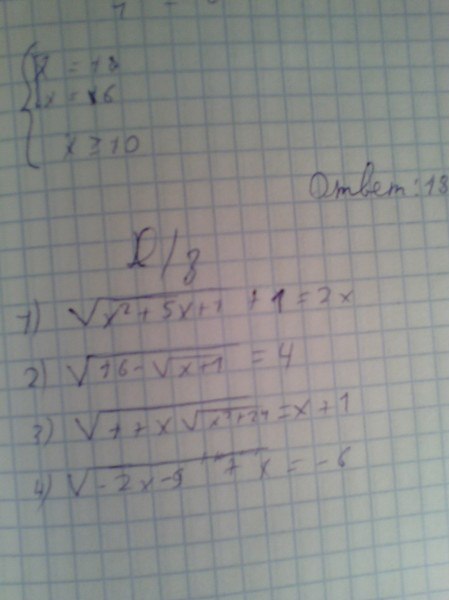 x = 18
x = 6
x ≥ 10
Ответ: 18
Д/з
1) √(x² + 5x + 1) + 1 = 2x
2) √(16 - √(x+1)) = 4
3) √(1 + x√(x²+24)) = x + 1
4) √(-2x - 9) + x = -6